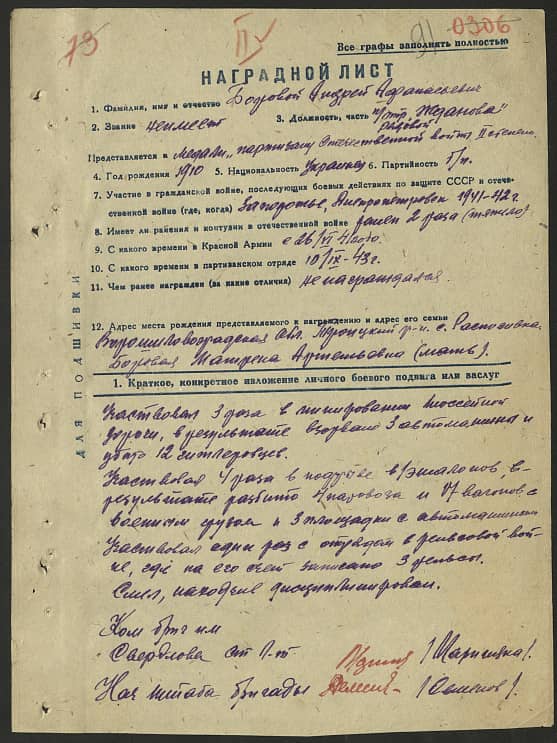 73
II
91 0306
Все графы заполнять полностью
НАГРАДНОЙ ЛИСТ
1. Фамилия, имя и отчество Бодровой Андрей Афанасьевич
2. Звание неимеет 3. Должность, часть п/отр. Жданова"
рядовой
Представляется к медали „партизану Отечественной войны II степени.
4. Год рождения 1910 5. Национальность Украинец 6. Партийность б/п.
7. Участие в гражданской войне, последующих боевых действиях по защите СССР и отече-
ственной войне (где, когда) Запорожье, Днепропетровск 1941-42 г.
8. Имеет ли ранения и контузии в отечественной войне ранен 2 раза (тяжело)
9. С какого времени в Красной Армии с 26/VI
10. С какого времени в партизанском отряде 10/IX-43г.
11. Чем ранее награжден (за какие отличия) ненаграждался.
12. Адрес места рождения представляемого к награждению и адрес его семьи
Ворошиловоградская обл. Троицкий р-н с.
Матрена (мать).
ДЛЯ ПОДШИВКИ
1. Краткое, конкретное изложение личного боевого подвига или заслуг
Участвовал 3 раза в минировании шоссейной
дороги, в результате взорвано 3 автомашины и
убито 12 гитлеровцев.
Участвовал 4 раза в подрыве в/эшалонов, в
результате разбито 4 паровоза и 17 вагонов с
военным грузом и 3 площадки с автомашинами
Участвовал один раз с отрядом в рельсовой вой-
не, где на его счет записано 3 рельсы.
Смел, находчив дисциплинирован.
Ком бриг им
Свердлова ст л-т
Нач штаба бригады /Семенов/.